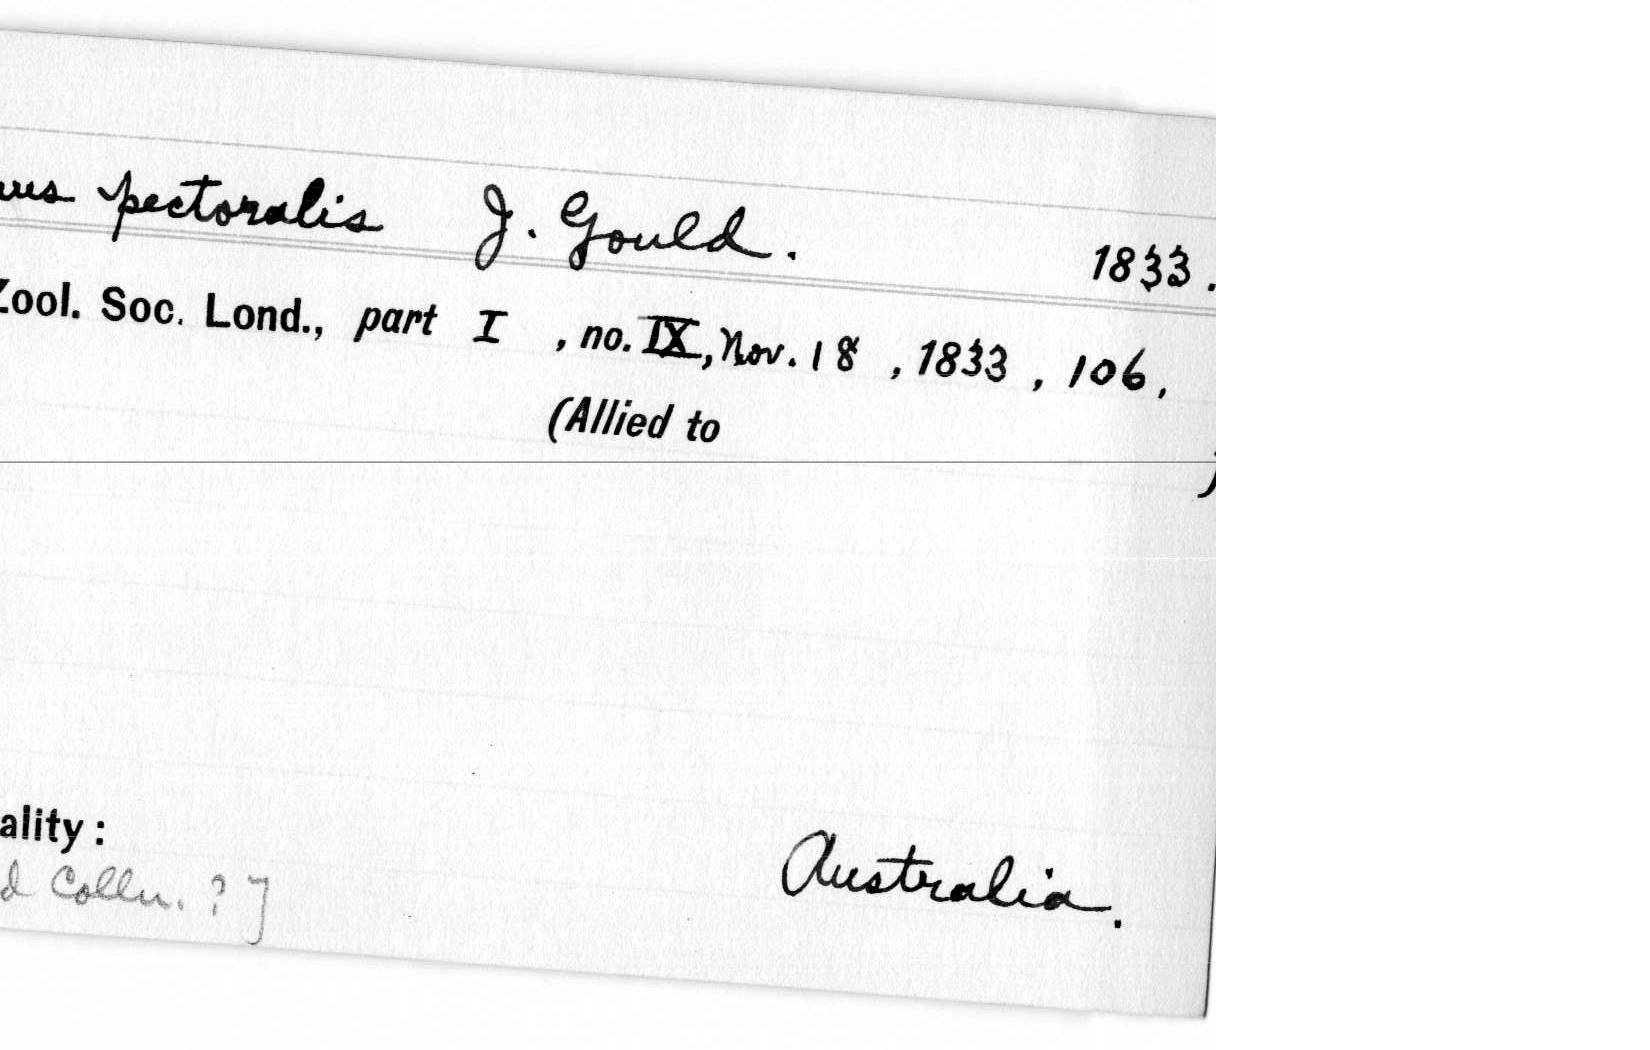 pectoralis J. Gould. 1833.
Zool. Soc. Lond., part I , no. IX, Nov. 18 , 1833 , 106,
(Allied to )
ality :
Australia.
d Colln. ? ]